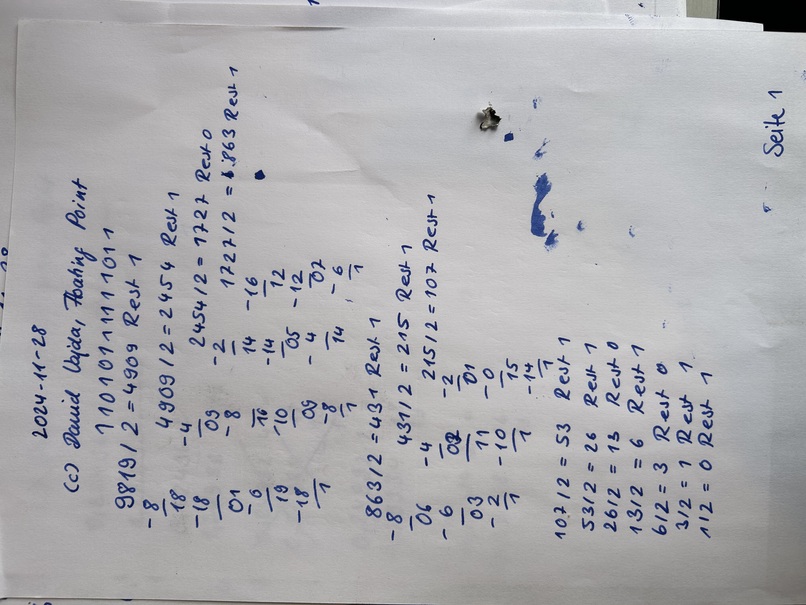 2024-11-28
(c) David Vajda, Floating Point
11010111111011
9819/2 = 4909 Rest 1
-8
4909/2 = 2454 Rest 1
18 -4
2454/2 = 1727 Rest 0
-18 09 -2
1727/2 = 863 Rest 1
01 -8 14 -16
-0 10 -14 12
19 -10 05 -12
-18 09 -4 07
1 -8 14 -6
1 1
863/2 = 431 Rest 1
-8
431/2 = 215 Rest 1
06 -4
215/2 = 107 Rest 1
-6 03 -2
03 11 01
-2 -10 -0
1 1 15
-14
1
107/2 = 53 Rest 1
53/2 = 26 Rest 1
26/2 = 13 Rest 0
13/2 = 6 Rest 1
6/2 = 3 Rest 0
3/2 = 1 Rest 1
1/2 = 0 Rest 1
Seite 1